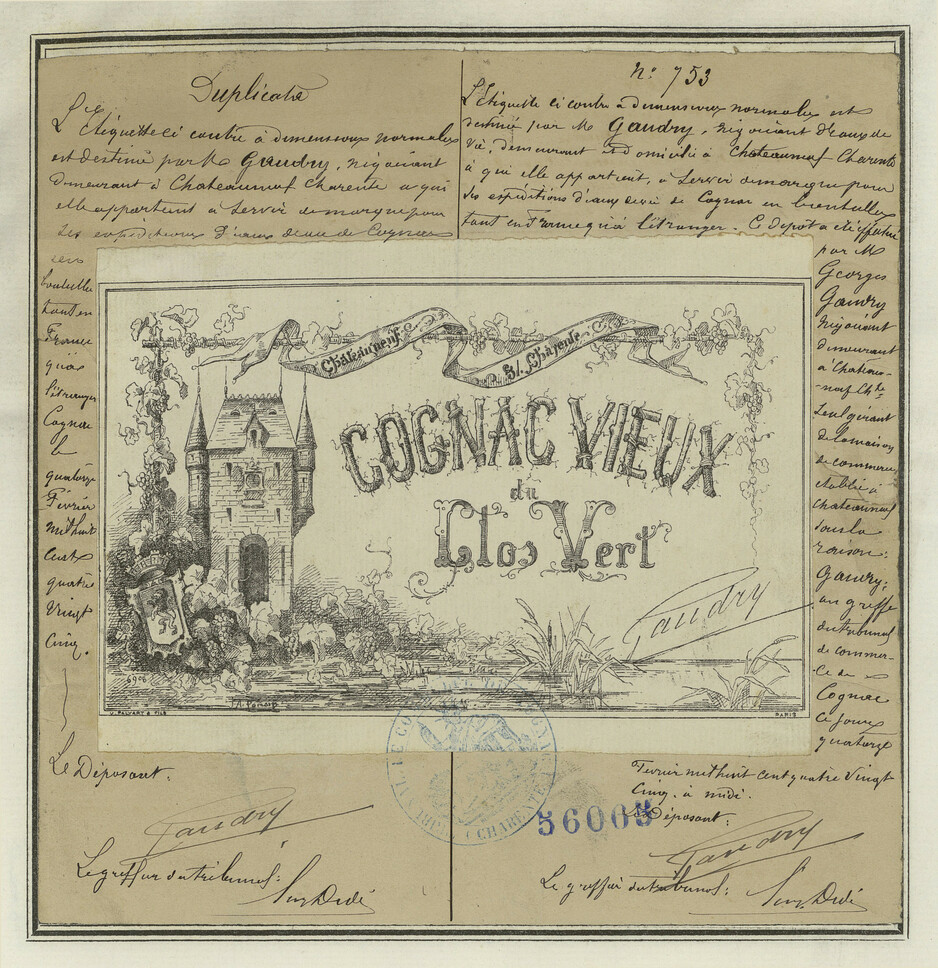 Duplicata
L'Etiquette ci contre à dimensions normales
est destiné par M Gaudry, négociant
demeurant à Chateauneuf Charente a qui
elle appartient à servir de marque pour
ses expéditions d'eaux de vie de Cognac
en
bouteilles
tant en
France
qu'à
l'étranger
Cognac
le
quatorze
Février
mil huit
cent
quatre
Vingt
Cinq.
Le Déposant:
Gaudry
Le greffier du tribunal:
N: 753
L'Etiquette ci contre à dimensions normales est
destinée par M Gaudry, négociant d'Eaux de
Vie, demeurant et domicilié à Chateauneuf Charente
à qui elle appartient, à servir de marque pour
ses expéditions d'eaux de vie de Cognac en bouteilles
tant en France qu'à l'étranger. Ce dépot a été effectué
par M
Georges
Gaudry
négociant
demeurant
à Chateau-
-neuf Chte
seul gérant
de la maison
de commerce
établie à
Chateauneuf
sous la
raison:
Gaudry;
au greffe
du tribunal
de commer-
ce de
Cognac
ce jour
quatorze
Février mil huit cent quatre Vingt
Cinq, à midi.
Le Déposant:
Gaudry
Le greffier du tribunal:
56005
Châteauneuf
S/. Charente
COGNAC VIEUX
du
Clos Vert
Gaudry
6906
PARIS